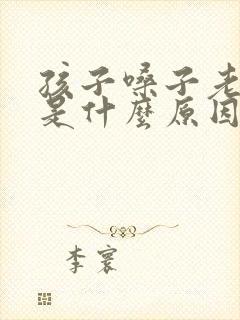 孩子嗓子老
是什麼原因
李寰